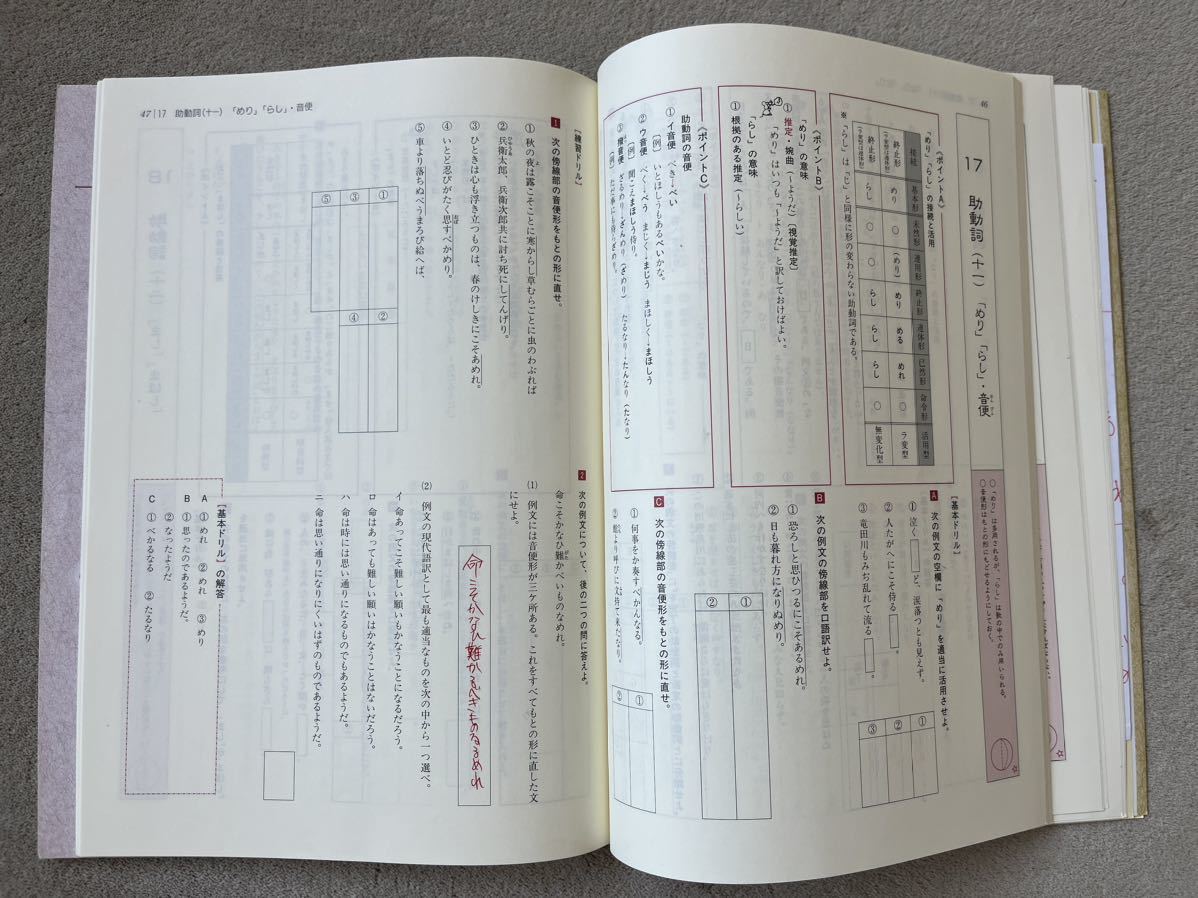 46
17 助動詞（十一）「めり」「らし」・音便
○「めり」は多用されるが、「らし」は歌の中でのみ用いられる。
○音便形はもとの形にもどせるようにしておく。
《ポイントA》
「めり」「らし」の接続と活用
接続 基本形 未然形 連用形 終止形 連体形 已然形 命令形 活用型
終止形（ラ変型は連体形） めり ○ （めり） めり める めれ ○ ラ変型
終止形（ラ変型は連体形） らし ○ ○ らし らし らし ○ 無変化型
※「らし」は「じ」と同様に形の変わらない助動詞である。
《ポイントB》
「めり」の意味
① 推定・婉曲（〜ようだ）（視覚推定）
「めり」はいつも「〜ようだ」と訳しておけばよい。
「らし」の意味
① 根拠のある推定（〜らしい）
《ポイントC》
助動詞の音便
① イ音便 べき→べい
［例］ いとほしうもあるべいかな。
② ウ音便 べく→べう まじく→まじう まほしく→まほしう
［例］ 聞こえまほしう侍り。
③ 撥音便 ざるめり→ざんめり（ざめり） たるなり→たんなり（たなり）
［例］ ただ事にも侍らざめり。
［基本ドリル］
A 次の例文の空欄に「めり」を適当に活用させよ。
① 泣く ど、涙落つとも見えず。
② 人たがへにこそ侍る 。
③ 竜田川もみぢ乱れて流る 。
① ② ③
B 次の例文の傍線部を口語訳せよ。
① 恐ろしと思ひつるにこそあるめれ。
② 日も暮れ方になりぬめり。
① ②
C 次の傍線部の音便形をもとの形に直せ。
① 何事をか奏すべかんなる。
② 絵より叫びに文持て来たなり。
① ②
47｜17 助動詞（十一）「めり」「らし」・音便
［練習ドリル］
1 次の傍線部の音便形をもとの形に直せ。
① 秋の夜は露こそことに寒からし草むらごとに虫のわぶれば
② 兵衛太郎、兵衛次郎共に討ち死にしてんげり。
③ ひときは心も浮き立つものは、春のけしきにこそあめれ。
④ いとど忍びがたく思すべかめり。
⑤ 車より落ちぬべうまろび給へば、
① ② ③ ④ ⑤
2 次の例文について、後の二つの問に答えよ。
命こそかなひ難かべいものなめれ。
(1) 例文には音便形が三ケ所ある。これをすべてもとの形に直した文にせよ。
命こそかなひ難かるべきものなるめれ
(2) 例文の現代語訳として最も適当なものを次の中から一つ選べ。
イ 命あってこそ難しい願いもかなうことになるだろう。
ロ 命はあっても難しい願いはかなうことはないだろう。
ハ 命は時には思い通りになるものでもあるようだ。
ニ 命は思い通りになりにくいはずのものであるようだ。
［基本ドリル］の解答
A ① めれ ② めれ ③ めり
B ① 思ったのであるようだ。
② なったようだ
C ① べかるなる ② たるなり